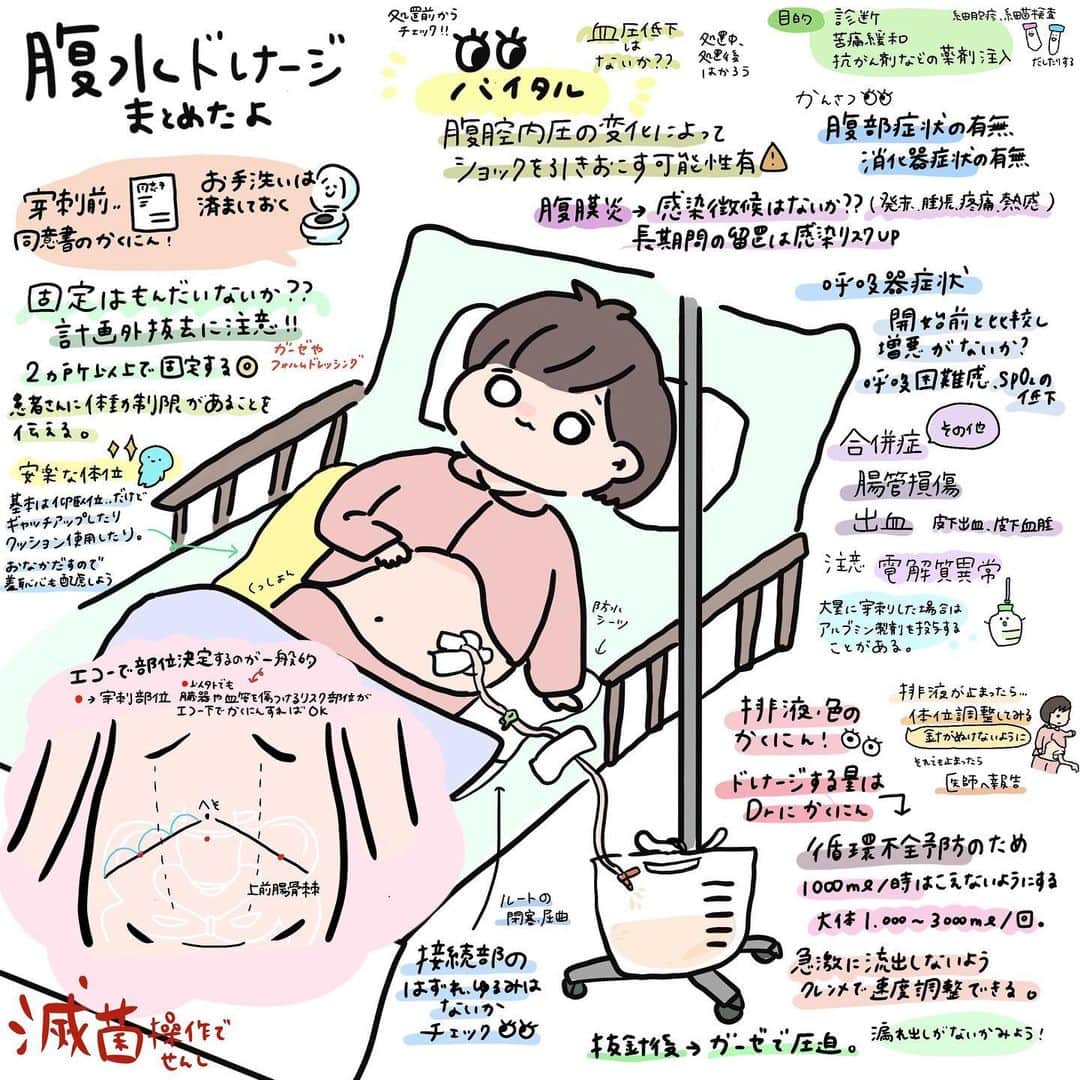 腹水ドレナージ
まとめたよ
処置前から
チェック!!
バイタル
血圧低下
は
ないか??
処置中、
処置後
はかろう
腹腔内圧の変化によって
ショックを引きおこす可能性有
目的
診断
苦痛緩和
抗がん剤などの薬剤注入
細胞診、細菌検査
だしたりする
かんさつ
腹部症状の有無
消化器症状の有無
腹膜炎→感染徴候はないか??(発赤、腫脹、疼痛、熱感)
長期間の留置は感染リスクup
穿刺前..
同意書のかくにん!
同意書
お手洗いは
済ましておく
固定はもんだいないか??
計画外抜去に注意!!
2カ所以上で固定する
ガーゼや
フォームドレッシング
患者さんに体動制限があることを
伝える。
安楽な体位
基本は仰臥位..だけど
ギャッチアップしたり
クッション使用したり。
おなかだすので
羞恥心も配慮しよう
くっしょん
防水
シーツ
呼吸器症状
開始前と比較し
増悪がないか?
呼吸困難感、SpO₂の
低下
合併症
その他
腸管損傷
出血 皮下出血、皮下血腫
注意 電解質異常
大量に穿刺した場合は
アルブミン製剤を投与する
ことがある。
エコーで部位決定するのが一般的
●→穿刺部位
●以外でも
臓器や血管を傷つけるリスク部位が
エコー下でかくにんすればOK
へそ
上前腸骨棘
滅菌操作で
せんし
ルートの
閉塞、屈曲
接続部の
はずれ、ゆるみは
ないか
チェック
排液・色の
かくにん!
ドレナージする量は
Drにかくにん
排液が止まったら...
体位調整してみる
針がぬけないように
それでも止まったら
医師へ報告
循環不全予防のため
1000ml/時はこえないようにする
大体1.000~3000ml/回。
急激に流出しないよう
クレンメで速度調整できる。
抜針後→ガーゼで圧迫。
漏れ出しがないかみよう!